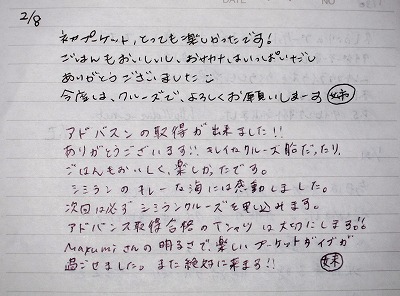 2/8
初プーケット、とっても楽しかったです!
ごはんもおいしいし、おサカナはいっぱいだし
ありがとうございました
今度は、クルーズで、よろしくお願いしまーす 姉
アドバスンの取得が出来ました!!
ありがとうございます!! キレイなクルーズ船だったり、
ごはんもおいしく、楽しかったです。
シミランのキレーな海には感動しました。
次回は必ずシミランクルーズを申し込みます。
アドバンス取得合格のTシャツは大切にします!!
Mayumiさんの明るさで、楽しいプーケットダイブが
過ごせました。また絶対に来ます!! 妹